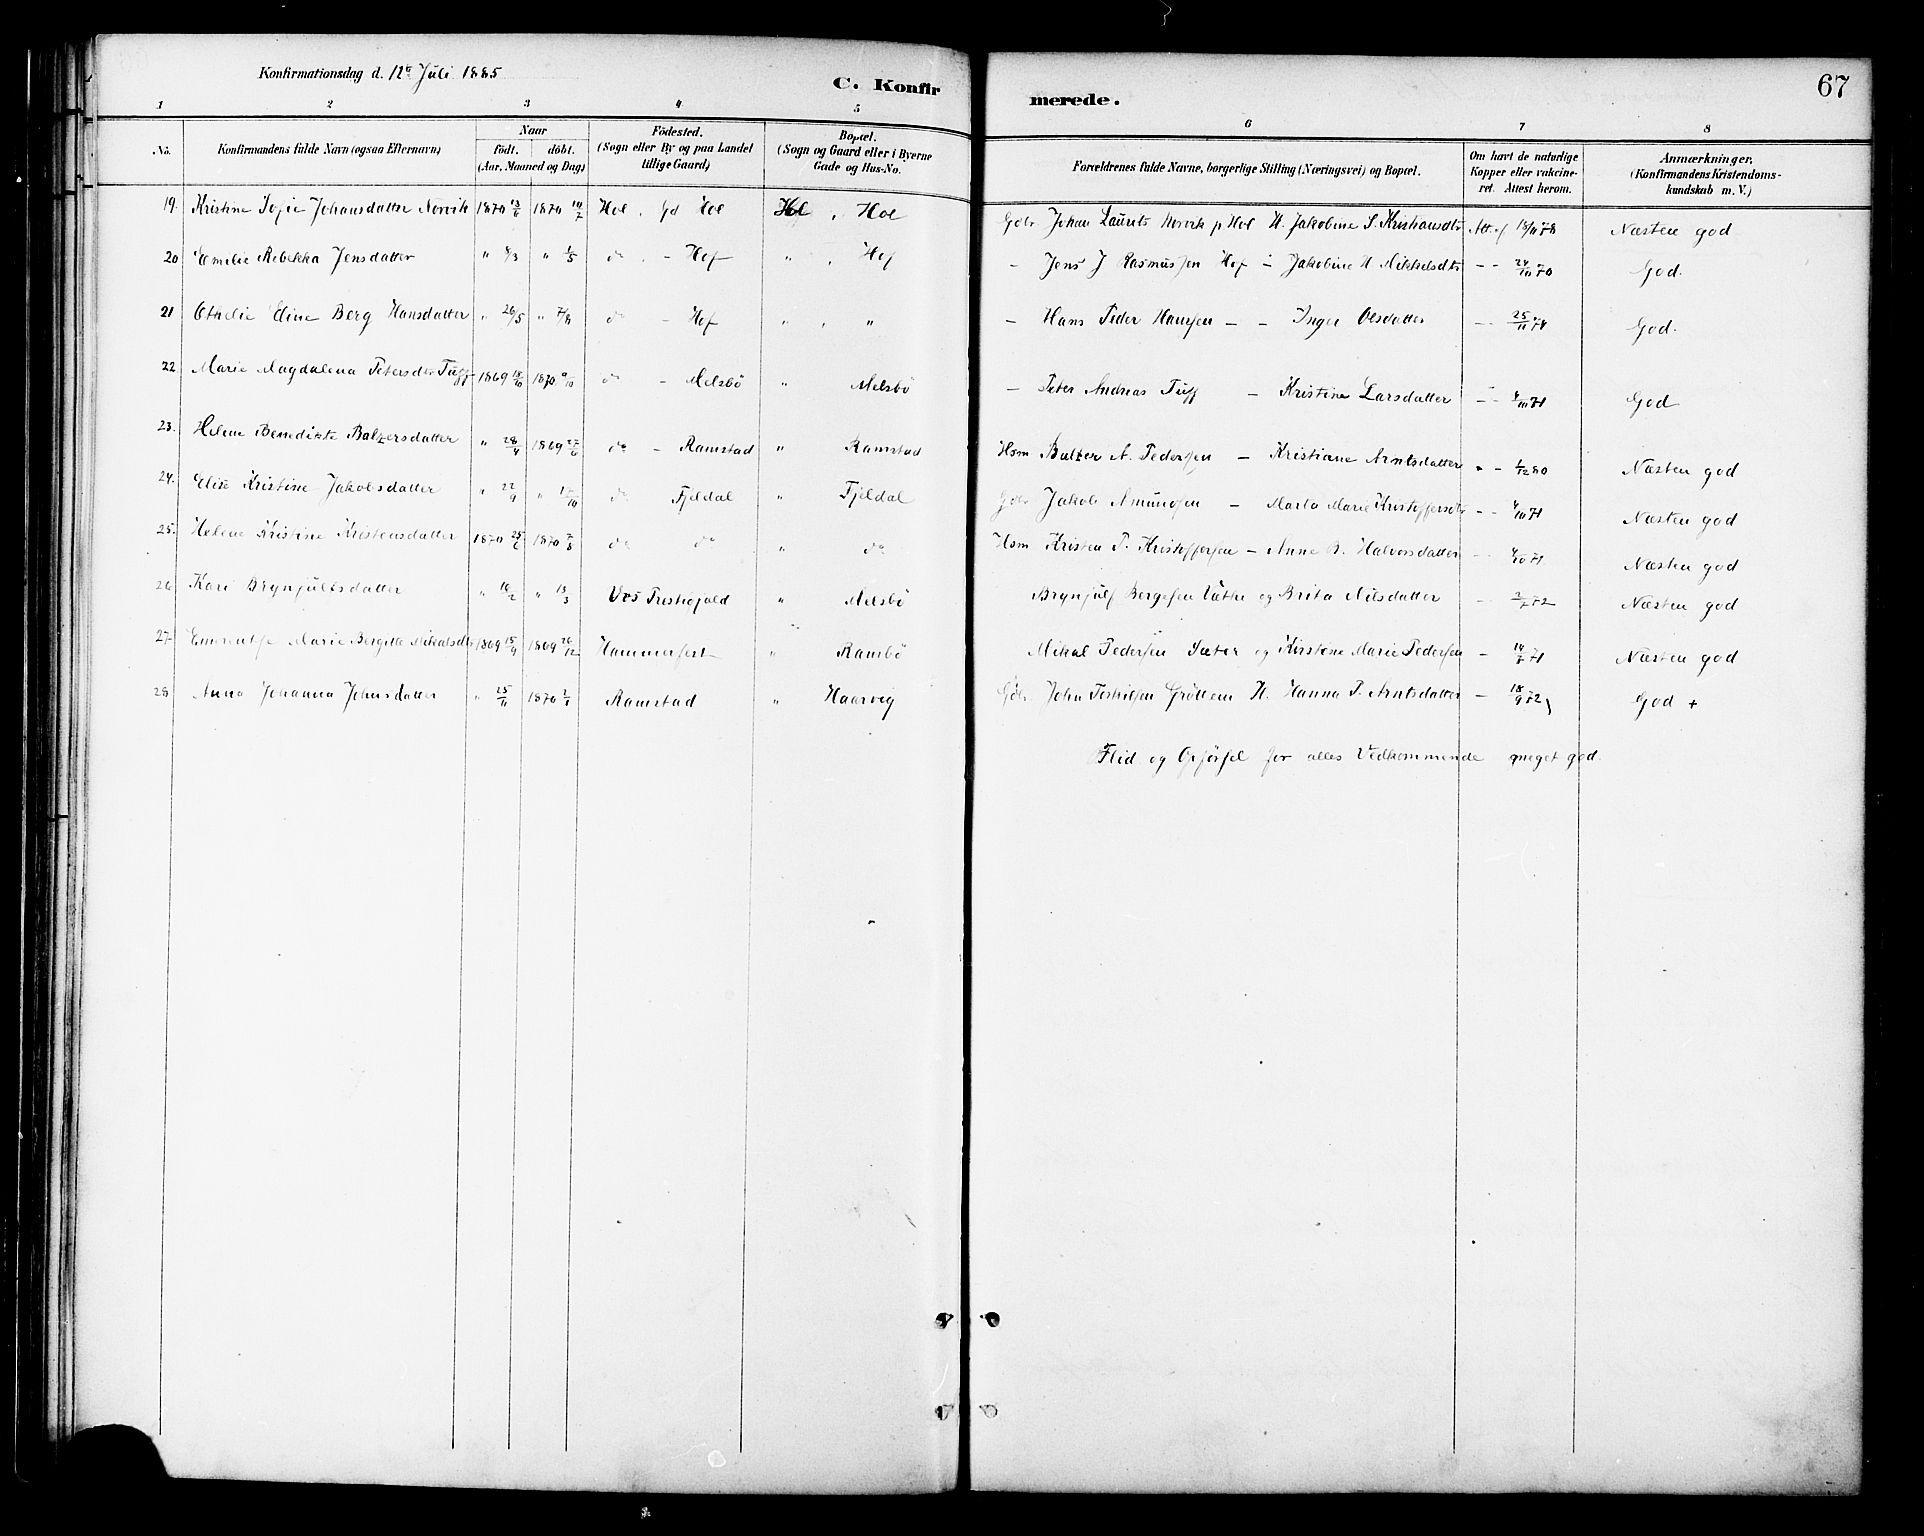 Konfirmationsdag d. 12te Juli 1885
C. Konfir merede. 67
1 2 3 4 5 6 7 8
No. Konfirmandens fulde Navn (ogsaa Efternavn) Naar født. døbt. (Aar, Maaned og Dag) Födested. (Sogn eller By og paa Landet tillige Gaard) Bopæl. (Sogn og Gaard eller i Byerne Gade og Hus-No. Forældrenes fulde Navne, borgerlige Stilling (Næringsvei) og Bopæl. Om havt de naturlige Kopper eller vakcineret. Attest herom. Anmærkninger. (Konfirmandens Kristendomskundskab m. V.)
19. Kristine Sofie Johansdatter Norvik 1870 13/6 1870 10/7 Hol, Gd Hol Hol, Hol Gdbr Johan Laurits Norvik p Hol H. Jakobine S. Kristiansdtr Att. af 18/11 78 Næsten god
20 Emilie Rebekka Jensdatter " 8/3 " 1/5 do - Hof " , Hof - Jens J Rasmussen Hof - Jakobine H Mikkelsdtr - - 24/10 70 God.
21 Othelie Eline Berg Hansdatter " 26/5 " 7/8 do - Hof " , " - Hans Peder Hansen - - Inger Olsdatter - - 25/11 74 God.
22 Marie Magdalena Petersdtr Tuff 1869 18/10 1870 9/10 do - Melsbö " Melsbö - Peter Andreas Tuff - Kristine Larsdatter - - 4/10 71 God
23. Helene Benedikte Balzersdatter " 28/4 1869 27/6 do - Ramstad " Ramstad Hsm Balzer A. Pedersen - Kristiane Arntsdatter " - 1/12 80 Næsten god
24. Elise Kristine Jakobsdatter " 22/9 " 17/10 do Fjeldal " Fjeldal Gdbr Jakob Amundsen - Marta Marie Kristoffersdtr - - 4/10 71 Næsten god
25. Helene Kristine Kristensdatter 1870 25/6 1870 7/8 do do " do Hsm Kristen P. Kristoffersen - Anne B. Halvorsdatter - - 4/10 71 Næsten god
26 Kari Brynjulvsdatter " 16/2 " 13/3 " Melsbö Brynjulf Bergesen og Brita Nilsdatter - 2/7 72 Næsten god
27 Marie Bergitte Mikalsdtr 1869 15/9 1869 26/12 Hammerfest " Rambö Mikal Pedersen Sæter og Kirstine Marie Pedersen - 14/8 71 Næsten god
28 Anna Johanna Johnsdatter " 25/11 1870 2/1 Ramstad " Haarvig Gdbr. John Gröttem H. Hanna P. Arntsdatter - 18/9 72 God +
Flid og Opförsel for alles Vedkommende meget god.